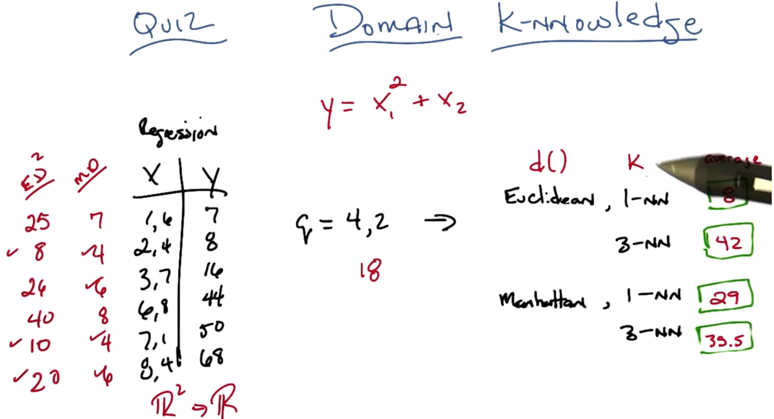 QUIZ DOMAIN K-NNOWLEDGE
y = x₁² + x₂
Regression
ED² MD X Y d() K average
25 7 1,6 7
✓ 8 ✓4 2,4 8
26 ✓6 3,7 16
40 8 6,8 44
✓10 ✓4 7,1 50
✓20 ✓6 8,4 68
ℝ² → ℝ
q = 4,2 ⇒
18
Euclidean, 1-NN 8
3-NN 42
Manhattan, 1-NN 29
3-NN 35.5